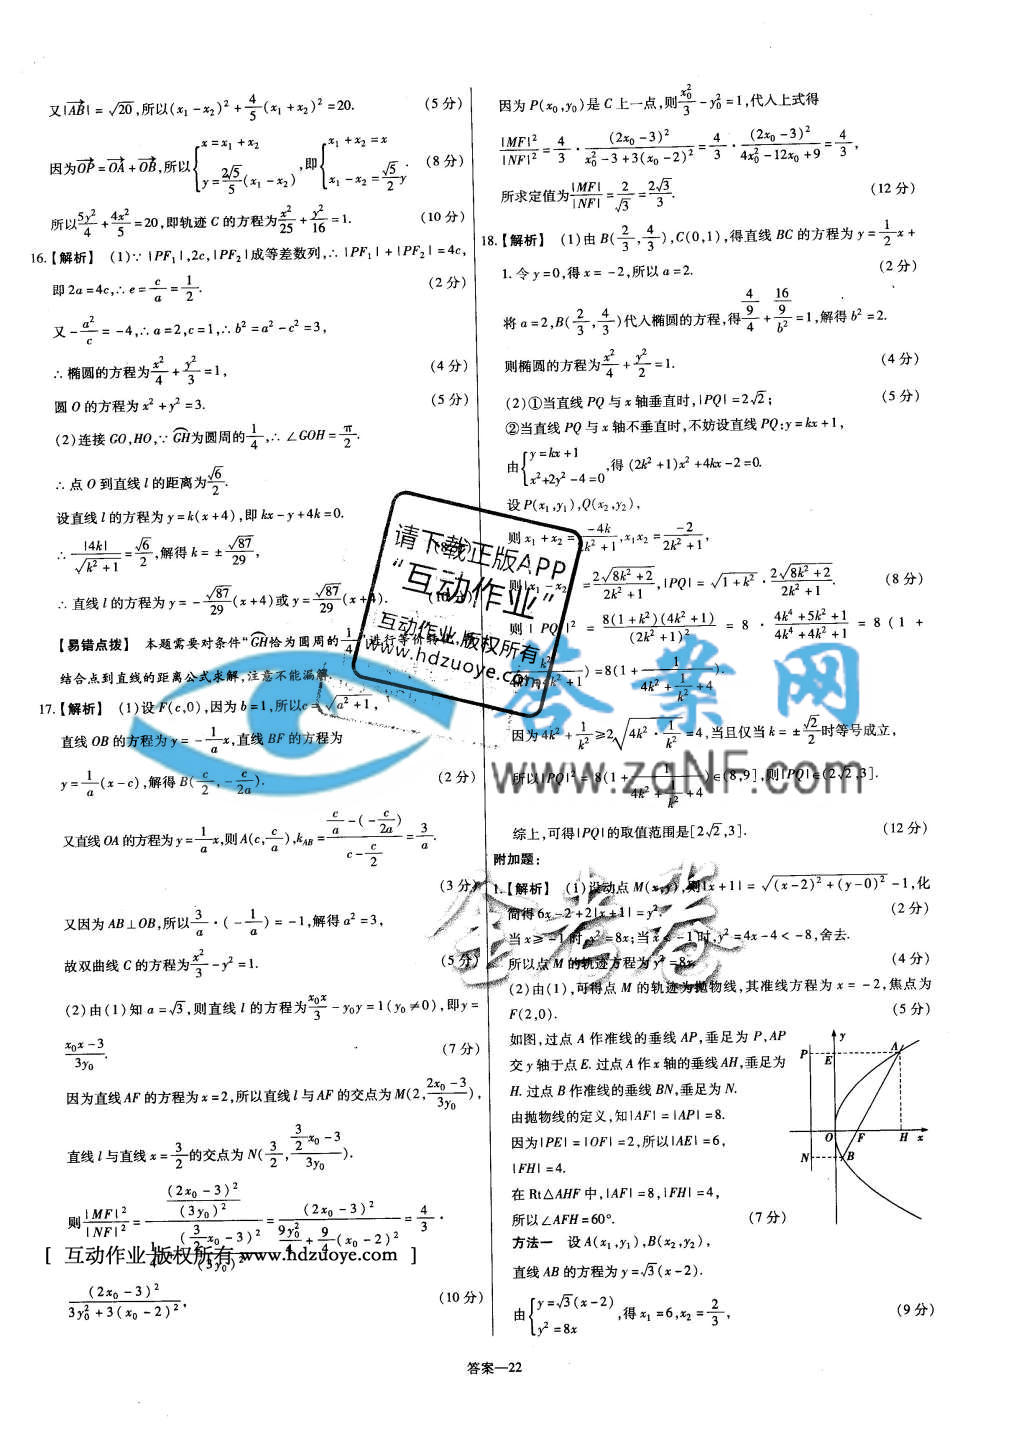 又|AB|=√20,所以(x₁-x₂)²+4/5(x₁+x₂)²=20. (5分)
因为OP=OA+OB,所以{x=x₁+x₂ y=2√5/5(x₁-x₂),即{x₁+x₂=x x₁-x₂=√5/2 y. (8分)
所以5y²/4+4x²/5=20,即轨迹C的方程为x²/25+y²/16=1. (10分)
16.【解析】 (1)∵|PF₁|,2c,|PF₂|成等差数列,∴|PF₁|+|PF₂|=4c,
即2a=4c,∴e=c/a=1/2. (2分)
又-a²/c=-4,∴a=2,c=1,∴b²=a²-c²=3,
∴椭圆的方程为x²/4+y²/3=1, (4分)
圆O的方程为x²+y²=3. (5分)
(2)连接GO,HO,∵GH为圆周的1/4,∴∠GOH=π/2.
∴点O到直线l的距离为√6/2.
设直线l的方程为y=k(x+4),即kx-y+4k=0.
∴|4k|/√(k²+1)=√6/2,解得k=±√87/29,
∴直线l的方程为y=-√87/29(x+4)或y=√87/29(x+4).
【易错点拨】 本题需要对条件“GH恰为圆周的1/4”进行等价转
结合点到直线的距离公式求解,注意不能漏解.
17.【解析】 (1)设F(c,0),因为b=1,所以c=√(a²+1),
直线OB的方程为y=-1/a x,直线BF的方程为
y=1/a(x-c),解得B(c/2,-c/2a). (2分)
又直线OA的方程为y=1/a x,则A(c,c/a),k_AB=(c/a-(-c/2a))/(c-c/2)=3/a.
(3分)
又因为AB⊥OB,所以3/a·(-1/a)=-1,解得a²=3,
故双曲线C的方程为x²/3-y²=1. (5分)
(2)由(1)知a=√3,则直线l的方程为x₀x/3-y₀y=1(y₀≠0),即y=
(x₀x-3)/3y₀. (7分)
因为直线AF的方程为x=2,所以直线l与AF的交点为M(2,(2x₀-3)/3y₀),
直线l与直线x=3/2的交点为N(3/2,(3/2 x₀-3)/3y₀).
则|MF|²/|NF|²=((2x₀-3)²/(3y₀)²)/(1/4+(3/2 x₀-3)²/(3y₀)²)=(2x₀-3)²/(9y₀²/4+9/4(x₀-2)²)=4/3·
[ 互动作业 版权所有 www.hdzuoye.com ]
(2x₀-3)²/(3y₀²+3(x₀-2)²), (10分)
因为P(x₀,y₀)是C上一点,则x₀²/3-y₀²=1,代入上式得
|MF|²/|NF|²=4/3·(2x₀-3)²/(x₀²-3+3(x₀-2)²)=4/3·(2x₀-3)²/(4x₀²-12x₀+9)=4/3,
所求定值为|MF|/|NF|=2/√3=2√3/3. (12分)
18.【解析】 (1)由B(2/3,4/3),C(0,1),得直线BC的方程为y=1/2 x+
1.令y=0,得x=-2,所以a=2. (2分)
将a=2,B(2/3,4/3)代入椭圆的方程,得(4/9)/4+(16/9)/b²=1,解得b²=2.
则椭圆的方程为x²/4+y²/2=1. (4分)
(2)①当直线PQ与x轴垂直时,|PQ|=2√2; (5分)
②当直线PQ与x轴不垂直时,不妨设直线PQ:y=kx+1,
由{y=kx+1 x²+2y²-4=0,得(2k²+1)x²+4kx-2=0.
设P(x₁,y₁),Q(x₂,y₂),
则x₁+x₂=-4k/2k²+1,x₁x₂=-2/2k²+1,
则|x₁-x₂|=2√(8k²+2)/(2k²+1),|PQ|=√(1+k²)·2√(8k²+2)/(2k²+1). (8分)
则|PQ|²=8(1+k²)(4k²+1)/(2k²+1)²=8·(4k⁴+5k²+1)/(4k⁴+4k²+1)=8(1+
k²/(4k⁴+4k²+1))=8(1+1/(4k²+1/k²+4).
因为4k²+1/k²≥2√(4k²·1/k²)=4,当且仅当k=±√2/2时等号成立,
所以|PQ|²=8(1+1/(4k²+1/k²+4))∈(8,9],则|PQ|∈(2√2,3].
综上,可得|PQ|的取值范围是[2√2,3]. (12分)
附加题:
1.【解析】 (1)设动点M(x,y),则|x+1|=√((x-2)²+(y-0)²)-1,化
简得6x-2+2|x+1|=y². (2分)
当x≥-1时,y²=8x;当x<-1时,y²=4x-4<-8,舍去.
所以点M的轨迹方程为y²=8x. (4分)
(2)由(1),可得点M的轨迹为抛物线,其准线方程为x=-2,焦点为
F(2,0). (5分)
如图,过点A作准线的垂线AP,垂足为P,AP
交y轴于点E.过点A作x轴的垂线AH,垂足为
H.过点B作准线的垂线BN,垂足为N.
由抛物线的定义,知|AF|=|AP|=8.
因为|PE|=|OF|=2,所以|AE|=6,
|FH|=4.
在Rt△AHF中,|AF|=8,|FH|=4,
所以∠AFH=60°. (7分)
方法一 设A(x₁,y₁),B(x₂,y₂),
直线AB的方程为y=√3(x-2).
由{y=√3(x-2) y²=8x,得x₁=6,x₂=2/3, (9分)
y
P E A
O F H x
N B
答案—22
请下载正版APP
“互动作业”
互动作业.版权所有
www.hdzuoye.com
答案网
www.zqNF.com
金考卷